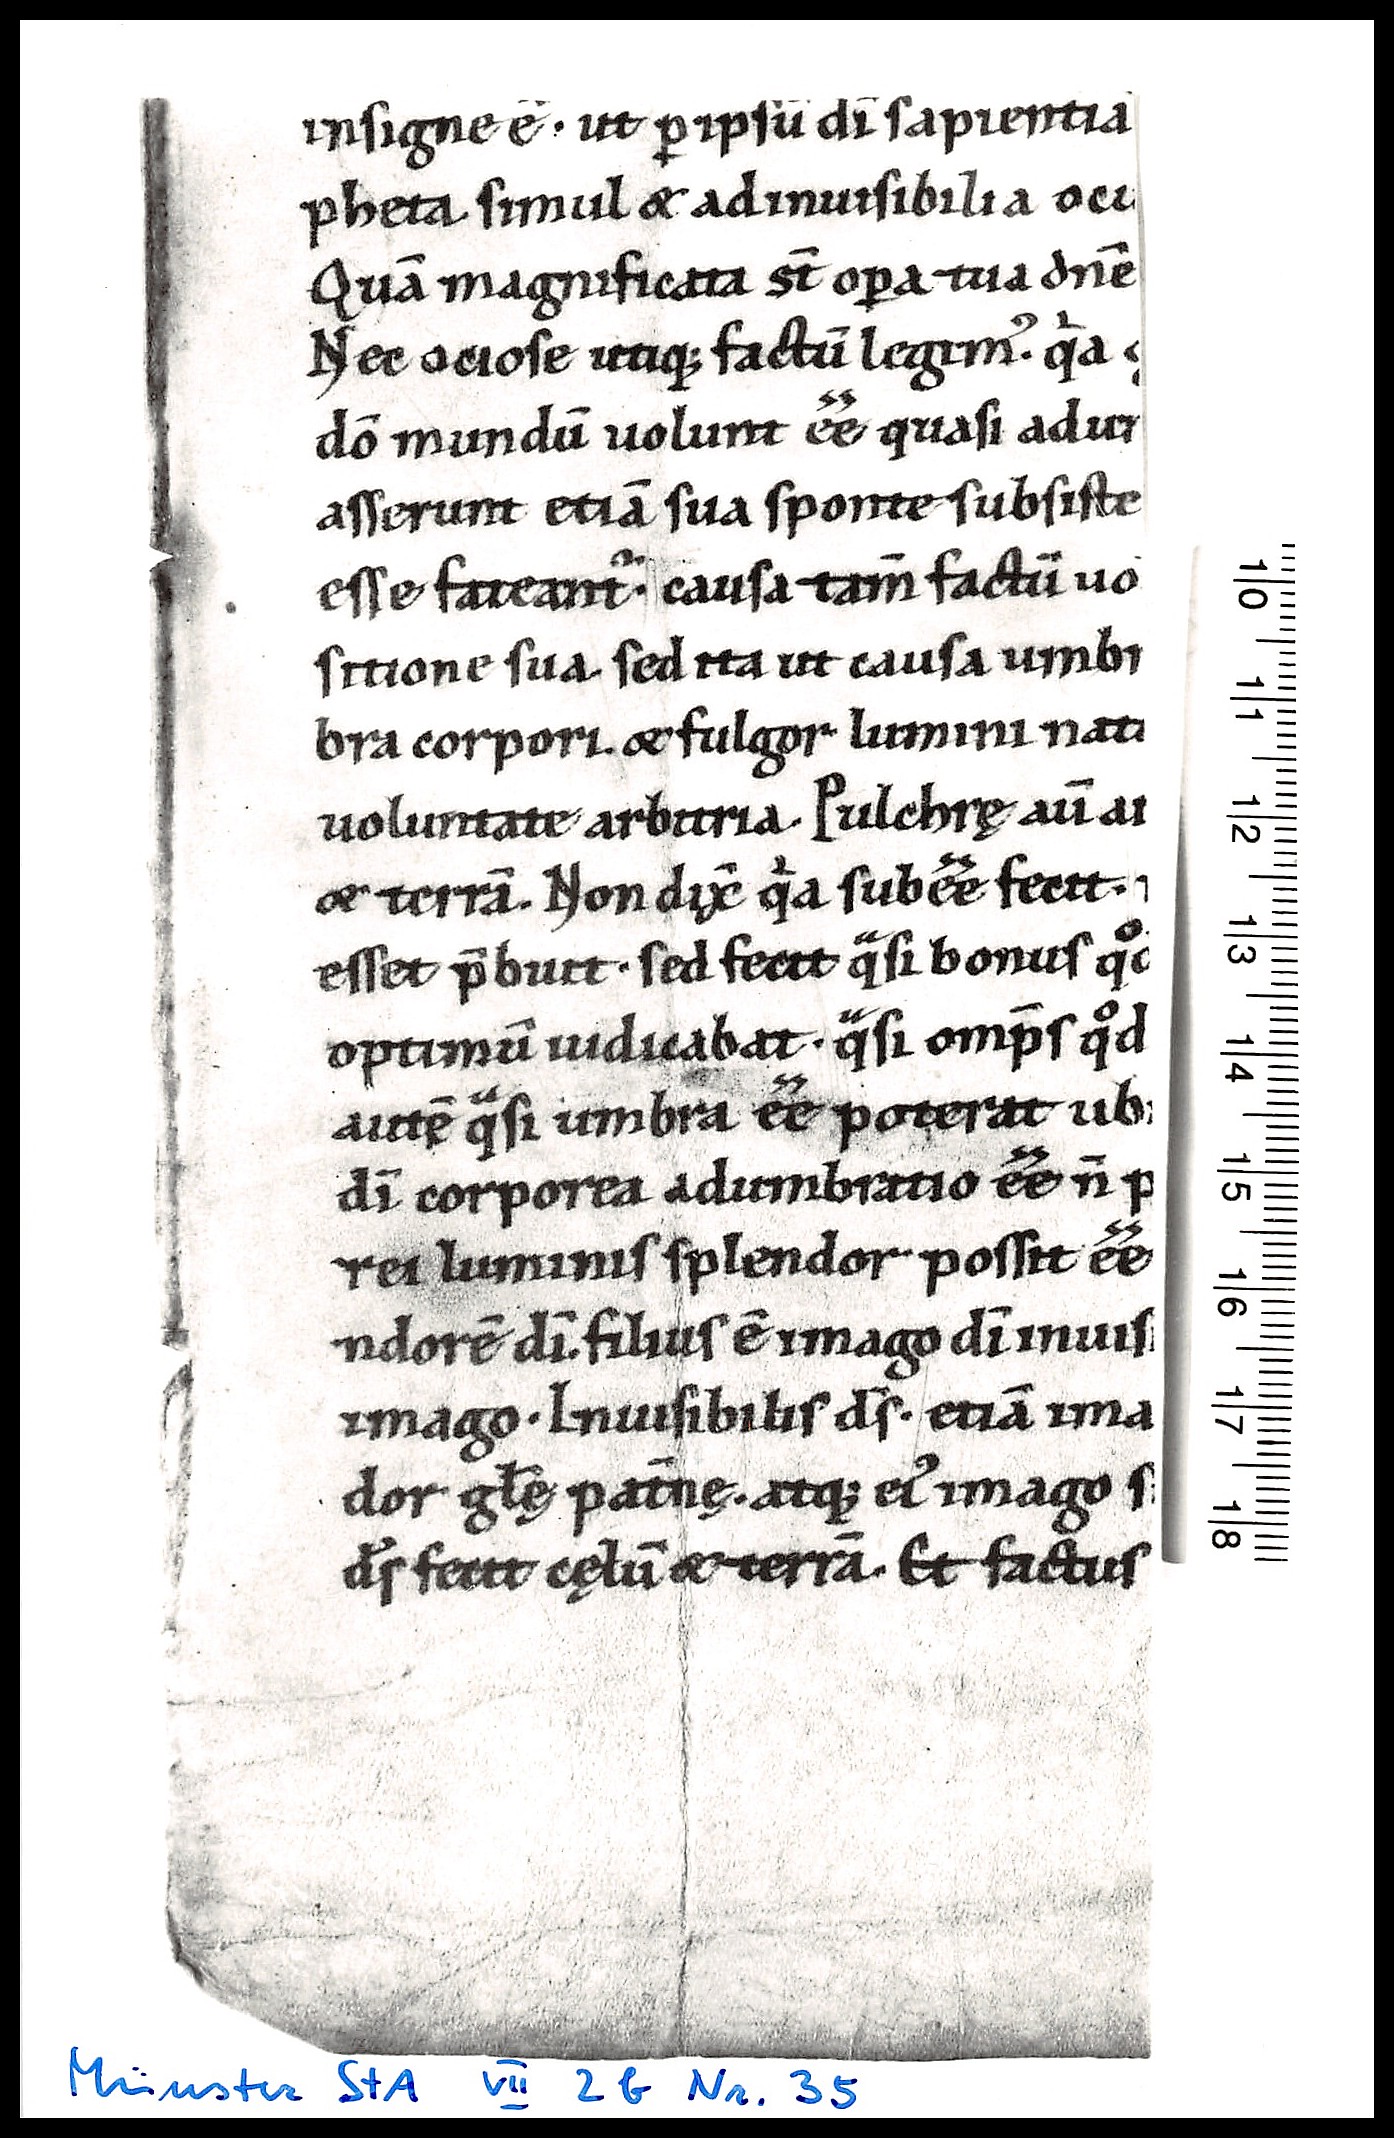 insigne ē· ut ꝑ ipsū dī sapientia
pheta simul & ad inuisibilia ocu
Quā magnificata st̄ oꝑa tua dn̄e
Nec ociose utiq; factū legimꝰ· qͥa
dō mundū uolunt ēē quasi adum
asserunt etiā sua sponte subsiste
esse fateant᷒· causa tam̄ factū uo
sitione sua sed ita ut causa umbr
bra corpori. & fulgor lumini nati
uoluntate arbitria. Pulchrę aū ai
& terrā. Non dix̄ qͥa subēē fecit·
esset p̄buit· sed fecit qᷓsi bonus qͦd
optimū iudicabat· qᷓsi omp̄s qͦd
autē qᷓsi umbra ēē poterat ubi
dī corporea adumbratio ēē n̄ p
rei luminis splendor possit ēē
ndorē dī. filius ē imago dī inuisi
imago· Inuisibilis ds̄· etiā ima
dor gl̄ę pat̄nę. atq; eiꝰ imago s
ds̄ fecit cęlū & terrā. Et factus
1|0
1|1
1|2
1|3
1|4
1|5
1|6
1|7
1|8
Münster StA VII 2 G Nr. 35